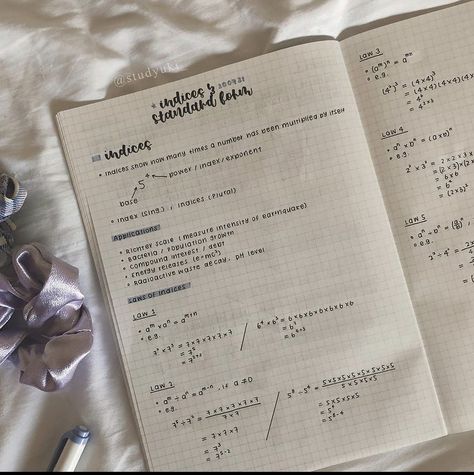 @studyuki
200731
* indices &
standard form
indices
• indices show how many times a number has been multiplied by itself
5⁴ ← power / index / exponent
base
• index (sing.) ; indices (plural)
Applications
• Richter scale (measure intensity of earthquake)
• Bacteria / Population growth
• Compound interest / debt
• Energy releases (e=mc²)
• Radioactive waste decay, pH level
Laws of indices
Law 1
• aᵐ × aⁿ = aᵐ⁺ⁿ
• e.g.
= 7 × 7 × 7 × 7 × 7
= 7⁵
= 6×6×6×6×6×6×6
Law 2
• aᵐ ÷ aⁿ = aᵐ⁻ⁿ, if a ≠ 0
• e.g.
7⁵ ÷ 7² = 7 × 7 × 7 × 7 × 7
7 × 7
= 7 × 7 × 7
= 7³
= 7⁵⁻²
5⁸ ÷ 5⁴ = 5×5×5×5×5×5×5×5
5×5×5×5
= 5×5×5×5
= 5⁴
= 5⁸⁻⁴
Law 3
• (aᵐ)ⁿ = aᵐⁿ
• e.g.
(4²)³ = (4×4)³
= (4×4)(4×4)(4×4
= 4⁶
= 4²ˣ³
Law 4
• aⁿ × bⁿ = (a×b)ⁿ
• e.g.
= 6×6
= 6²
Law 5
• e.g.